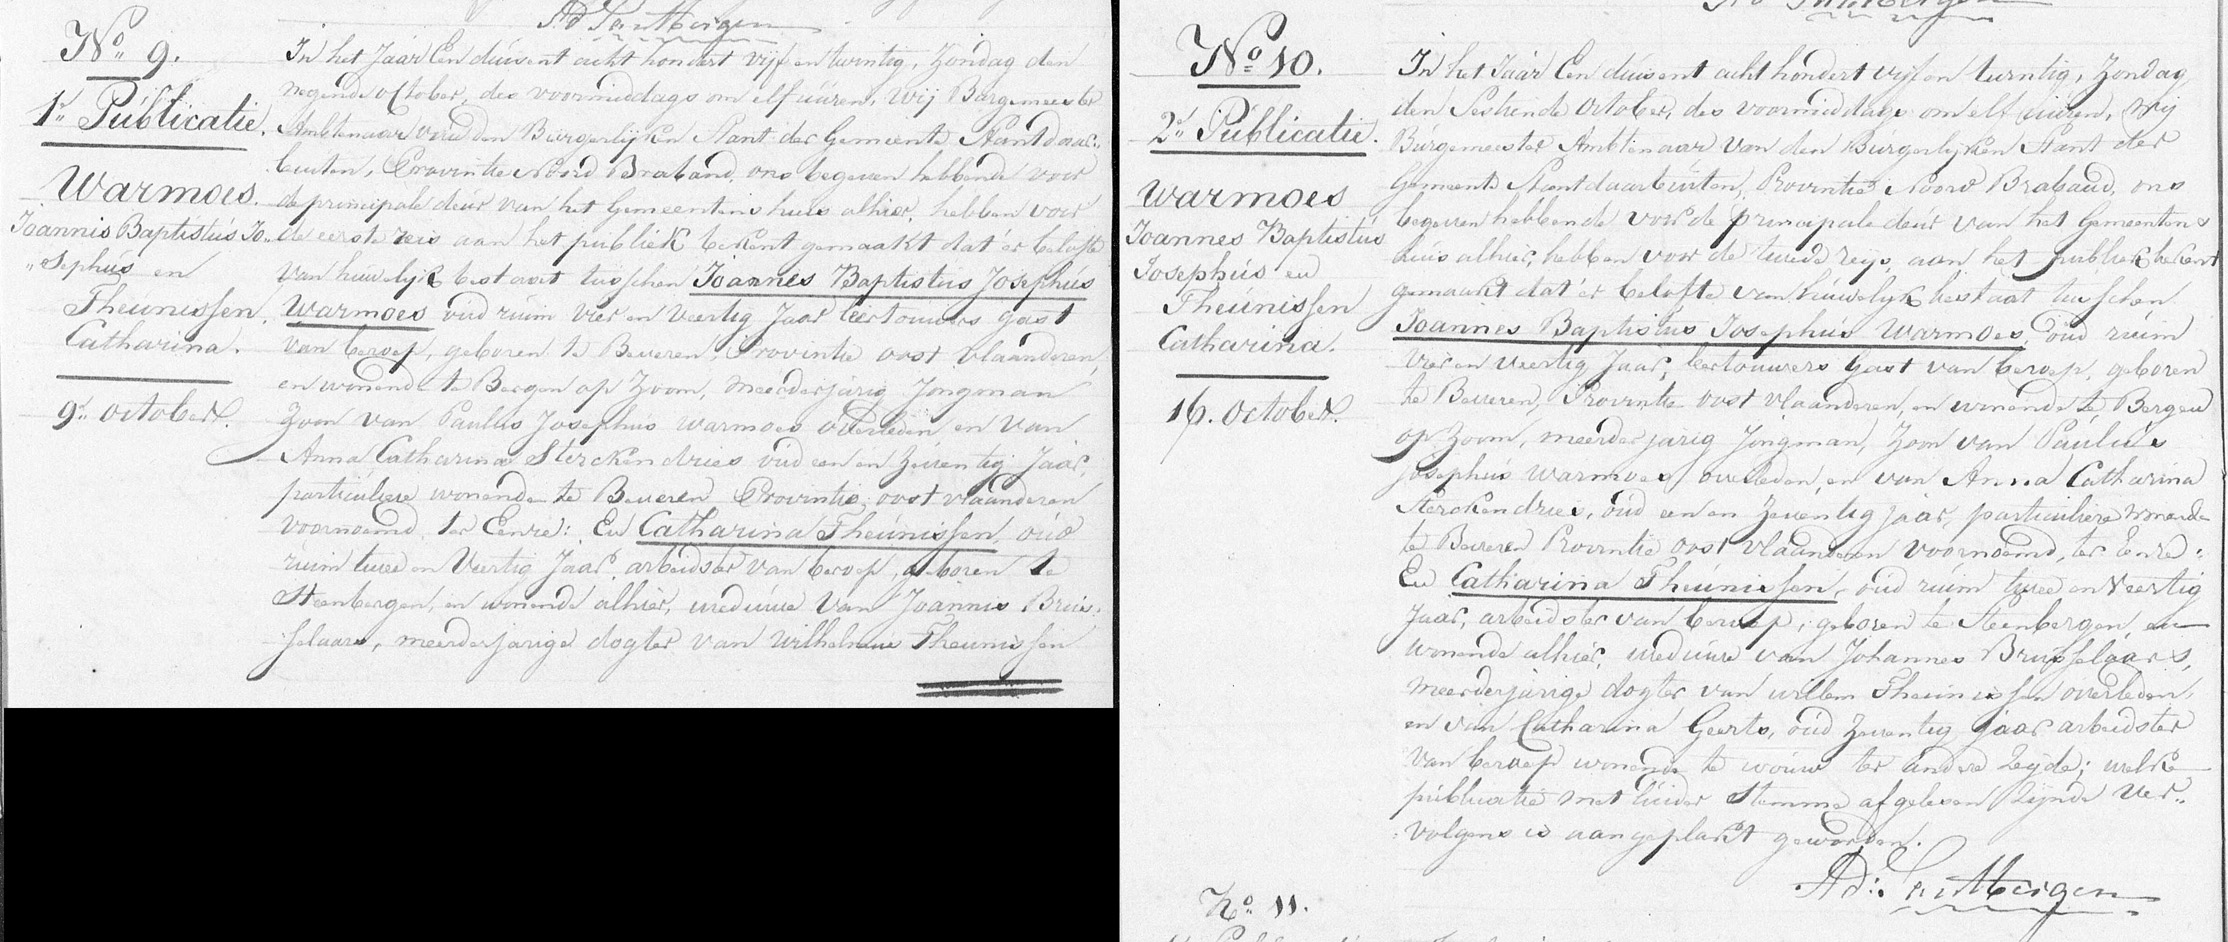 Ad Santbergen
No 9.
1e Publicatie.
Warmoes.
Joannis Baptistus Jo„
„sephus en
Theunissen.
Catharina.
9e october.
In het Jaar Een duisent acht hondert vijf en twintig, Zondag den
negende october, des voormiddags om elf uuren, Wij Burgemeester
Ambtenaar van den Burgerlijken Stant der Gemeente Stantdaar„
buiten, Provintie Noord Braband, ons begeven hebbende voor
de principale deur van het Gemeentens huis alhier, hebben voor
de eerste reis aan het publiek bekent gemaakt dat er belofte
van huwelyk bestaat tusschen Joannes Baptistus Josephus
Warmoes oud ruim vier en veertig Jaar leertouwers gast
van beroep, geboren te Beveren, Provintie oost vlaanderen,
en wonende te Bergen op Zoom, meerderjarig Jongman
Zoon van Paulus Josephus Warmoes overleden, en van
Anna Catharina Sterckendries oud een en zeventig Jaar,
particuliere wonende te Beveren Provintie oost vlaanderen
voornoemd, ter Eenre: En Catharina Theunissen, oud
ruim twee en Veertig Jaar, arbeidster van beroep, geboren te
Steenbergen, en wonende alhier, weduwe van Joannis Bruis„
selaars, meerderjarige dogter van Wilhelmus Theunissen
No 10.
2e Publicatie.
Warmoes
Joannes Baptistus
Josephus en
Theunissen
Catharina.
16. October.
In het Jaar Een duisent acht hondert vijf en twintig, Zondag
den Sestiende October, des voormiddags om elf uuren, Wij
Burgemeester Ambtenaar van den Burgerlijken Stant der
Gemeente Stantdaarbuiten, Provintie Noord Braband, ons
begeven hebbende voor de principale deur van het Gemeentens
huis alhier, hebben voor de tweede reys, aan het publiek bekent
gemaakt dat er belofte van huwelyk bestaat tusschen
Joannes Baptistus Josephus Warmoes, oud ruim
vier en veertig Jaar, leertouwers Gast van beroep, geboren
te Beveren, Provintie oost vlaanderen, en wonende te Bergen
op Zoom, meerderjarig Jongman, Zoon van Paulus
Josephus Warmoes overleden, en van Anna Catharina
Sterckendries, oud een en zeventig jaar, particuliere wonende
te Beveren Provintie oost vlaanderen voornoemd, ter Eenre:
En Catharina Theunissen, oud ruim twee en veertig
Jaar, arbeidster van beroep, geboren te Steenbergen, en
wonende alhier, weduwe van Johannes Brusselaars,
meerderjarige dogter van willem Theunissen overleden,
en van Catharina Geerts, oud zeventig jaar arbeidster
van beroep wonende te wouw ter andere Zeijde; welke
publicatie met luider Stemme afgelesen zijnde ver„
volgens is aangeplakt geworden.
Ad: Santbergen
No 11.